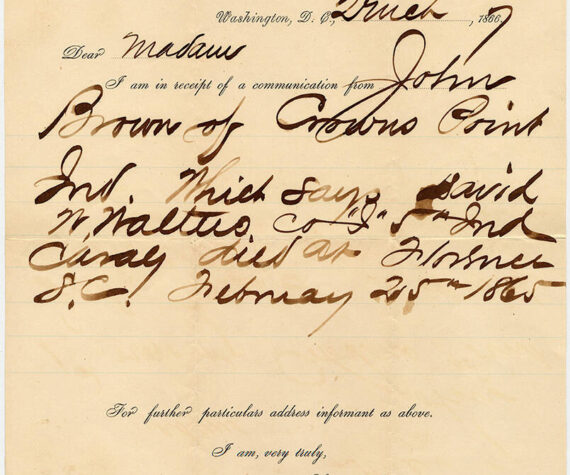 Washington, D. C., March, 1866. 7
Dear Madam
I am in receipt of a communication from John
Brown of Crowns Point
Ind. Which says David
W Walters Co "I" 5th Ind
Cavaly died at Florence
S.C. February 25th 1865
For further particulars address informant as above.
I am, very truly,